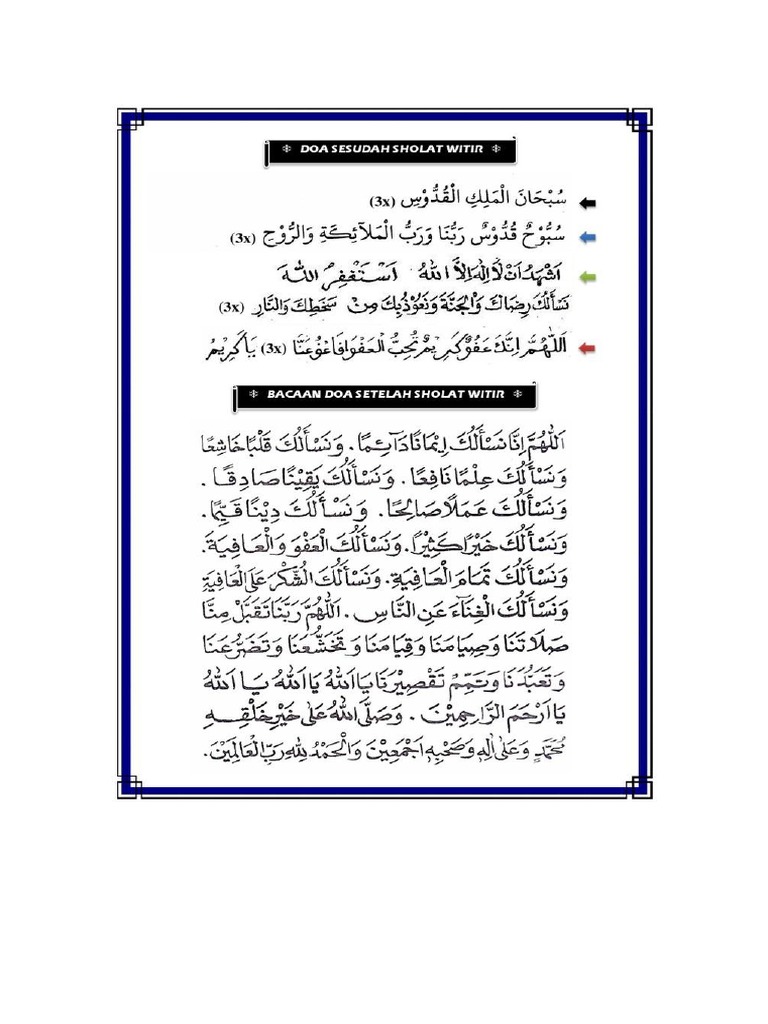 DOA SESUDAH SHOLAT WITIR
سُبْحَانَ الْمَلِكِ الْقُدُّوْسِ (3x)
سُبُّوْحٌ قُدُّوْسٌ رَبُّنَا وَرَبُّ الْمَلَآئِكَةِ وَالرُّوْحِ (3x)
اَشْهَدُ اَنْ لَّا اِلٰهَ اِلَّا اللهُ اَسْتَغْفِرُ اللهَ
نَسْأَلُكَ رِضَاكَ وَالْجَنَّةَ وَنَعُوْذُبِكَ مِنْ سَخَطِكَ وَالنَّارِ (3x)
اَللّٰهُمَّ اِنَّكَ عَفُوٌّ كَرِيْمٌ تُحِبُّ الْعَفْوَا فَاعْفُ عَنَّا (3x) يَاكَرِيْمُ
BACAAN DOA SETELAH SHOLAT WITIR
اَللّٰهُمَّ اِنَّا نَسْأَلُكَ اِيْمَانًا دَآئِمًا. وَنَسْأَلُكَ قَلْبًا خَاشِعًا
وَنَسْأَلُكَ عِلْمًا نَافِعًا. وَنَسْأَلُكَ يَقِيْنًا صَادِقًا.
وَنَسْأَلُكَ عَمَلًا صَالِحًا. وَنَسْأَلُكَ دِيْنًا قَيِّمًا.
وَنَسْأَلُكَ خَيْرًا كَثِيْرًا. وَنَسْأَلُكَ الْعَفْوَ وَالْعَافِيَةَ.
وَنَسْأَلُكَ تَمَامَ الْعَافِيَةِ. وَنَسْأَلُكَ الشُّكْرَ عَلَى الْعَافِيَةِ
وَنَسْأَلُكَ الْغِنَآءَ عَنِ النَّاسِ. اَللّٰهُمَّ رَبَّنَا تَقَبَّلْ مِنَّا
صَلَاتَنَا وَصِيَامَنَا وَقِيَامَنَا وَتَخَشُّعَنَا وَتَضَرُّعَنَا
وَتَعَبُّدَنَا وَتَمِّمْ تَقْصِيْرَنَا يَا اَللهُ يَا اَللهُ يَا اَللهُ
يَا اَرْحَمَ الرَّاحِمِيْنَ. وَصَلَّى اللهُ عَلَى خَيْرِ خَلْقِهِ
مُحَمَّدٍ وَعَلَى اٰلِهِ وَصَحْبِهِ اَجْمَعِيْنَ وَالْحَمْدُ لِلّٰهِ رَبِّ الْعَالَمِيْنَ.